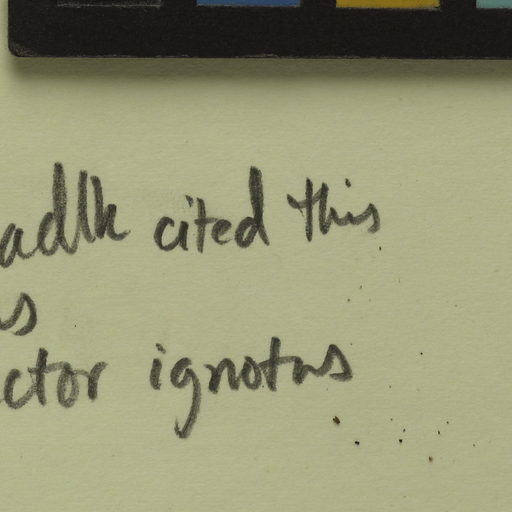 adlk cited this
s
ctor ignotus